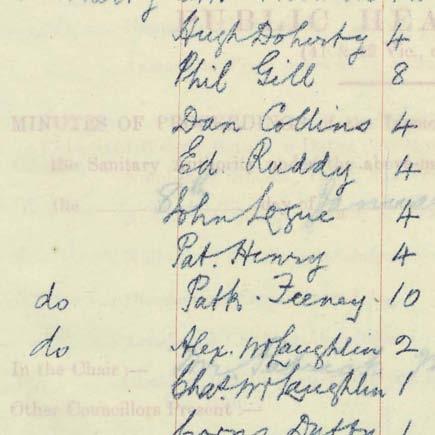 Hugh Doherty 4
PUBLIC HEA
Phil Gill 8
MINUTES OF PROCEEDINGS
Dan Collins 4
the Sanitary
Ed. Ruddy 4
the 8th
John Logue 4
Pat. Henry 4
do Patk. Feeney. 10
do Alex. McLaughlin 2
In the Chair :—
Chas. McLaughlin 1
Other Councillors Present :—